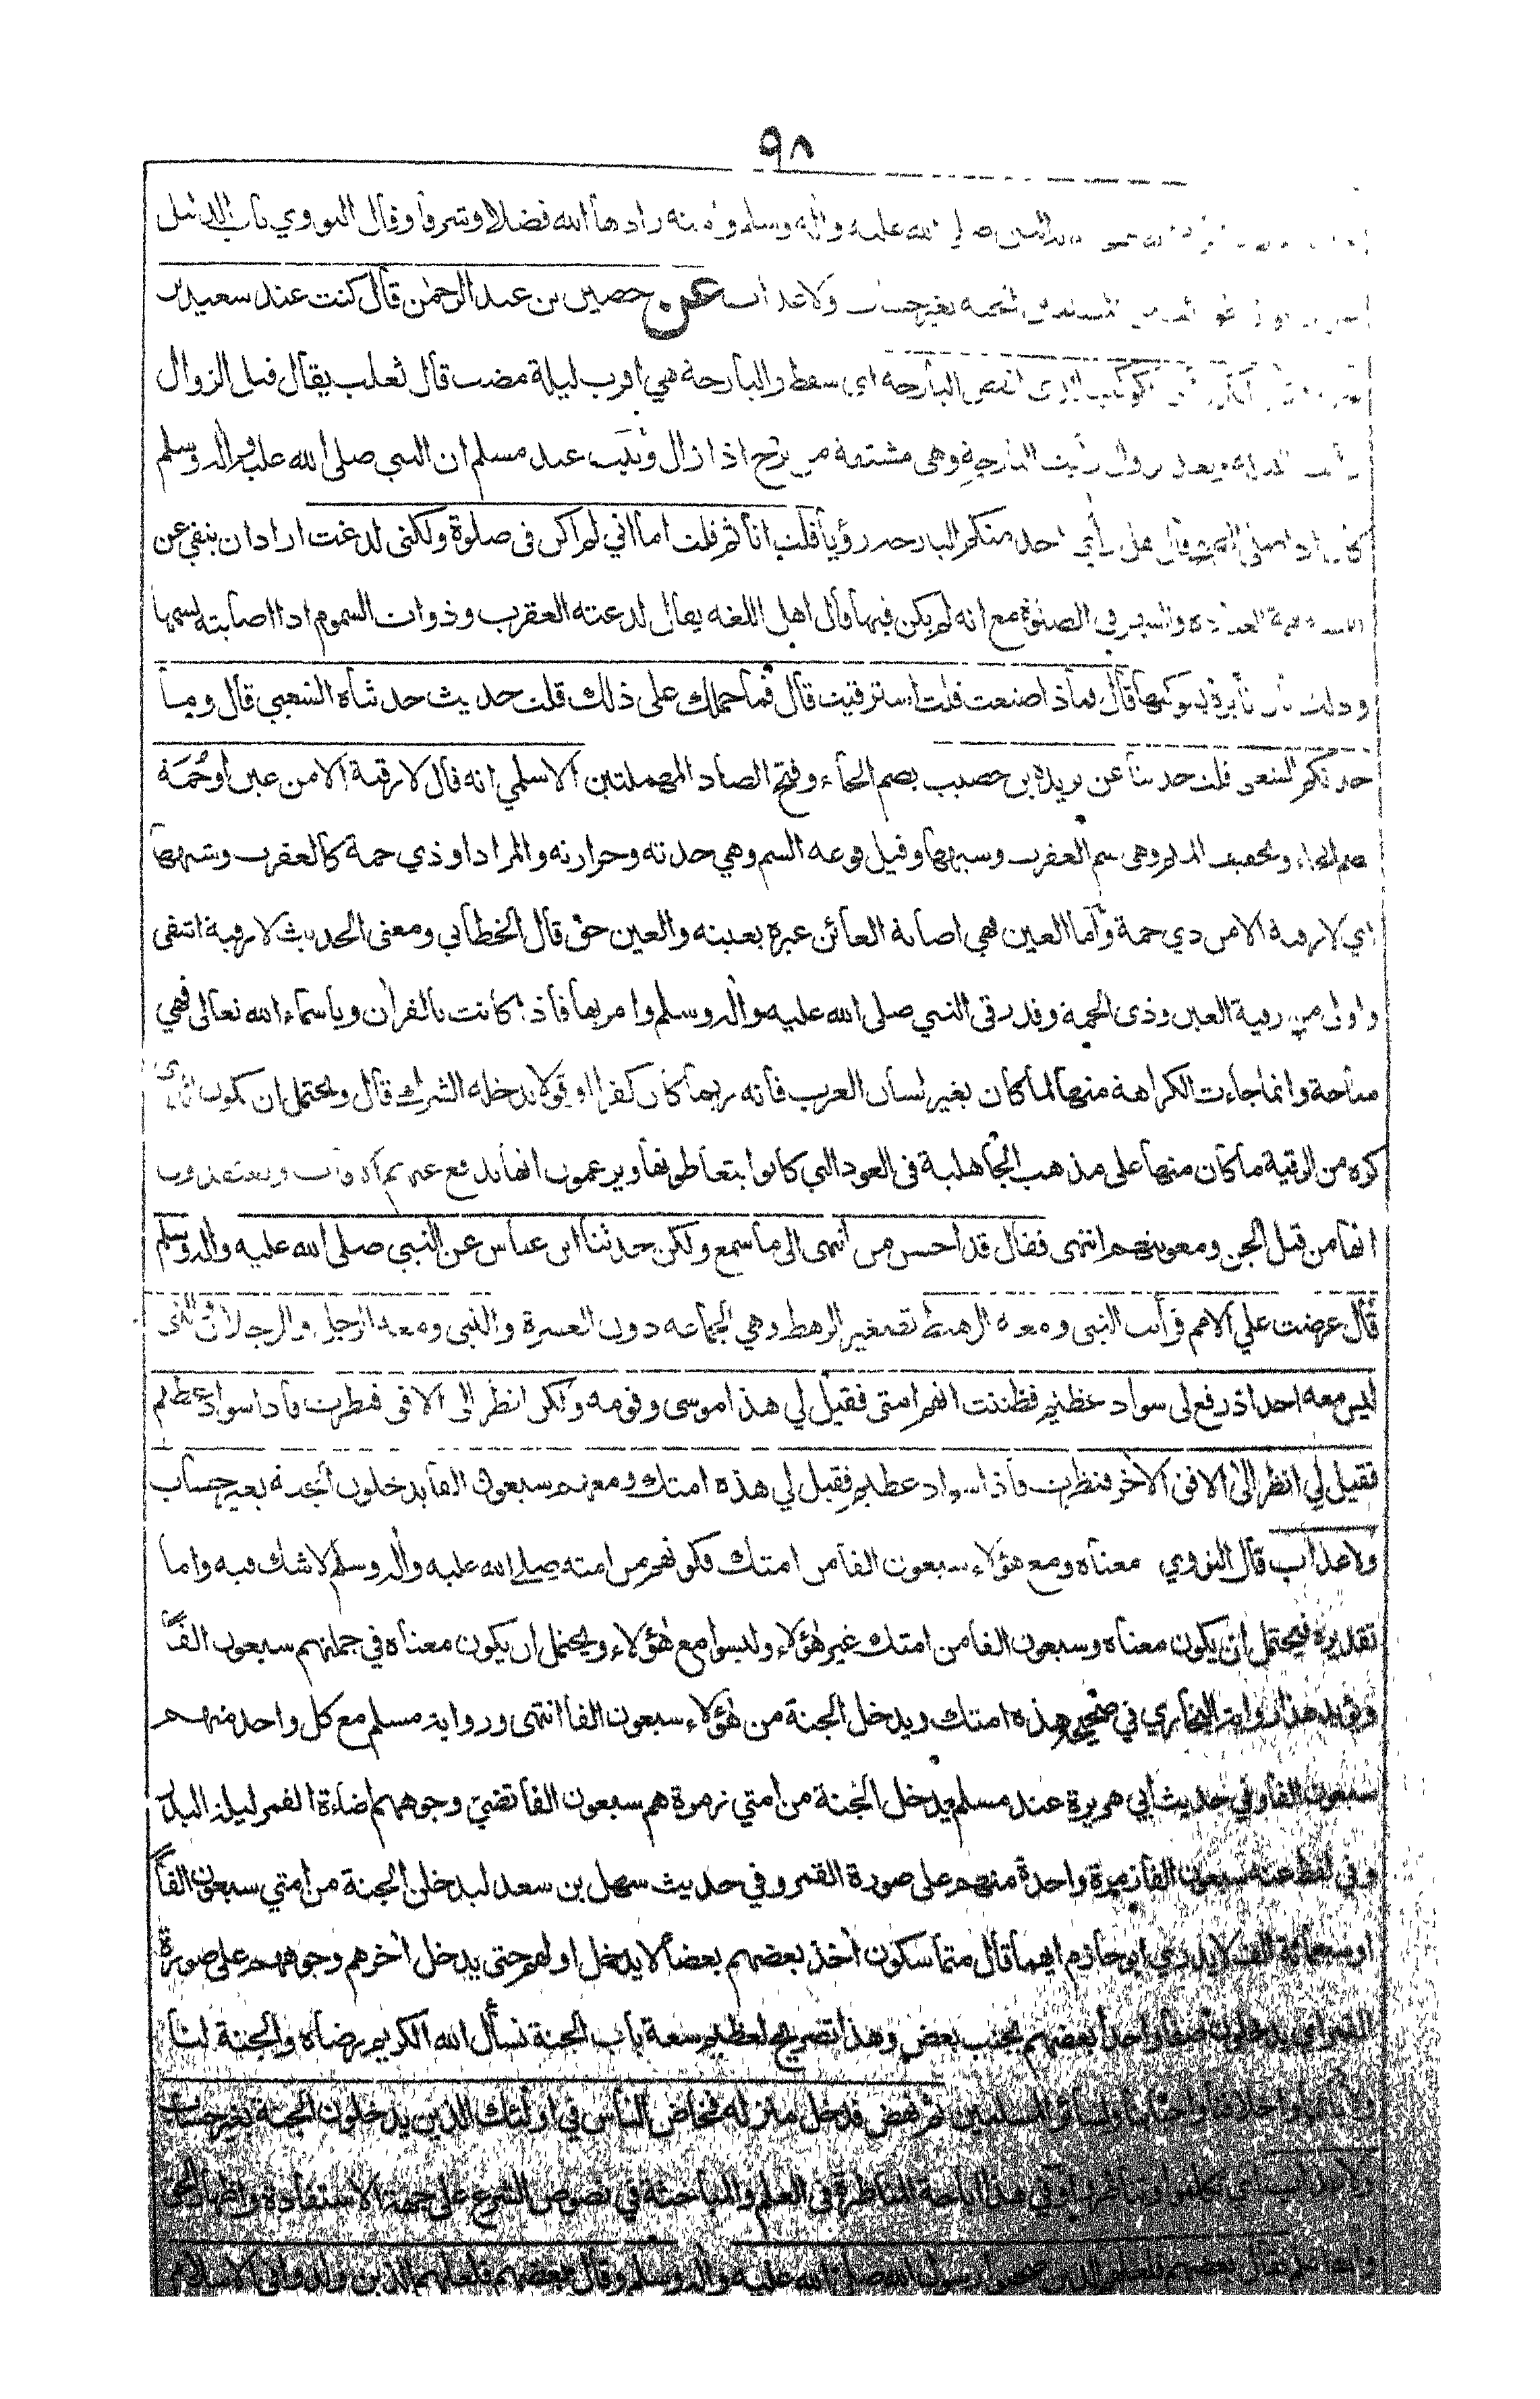 ٩٨
صلى الله عليه وآله وسلم وأمته زادها الله فضلا وشرفا وقال النووي باب الدليل
الجنة بغير حساب ولا عذاب عن حصين بن عبد الرحمن قال كنت عند سعيد بن
الكوكب الذي انقض البارحة اي سقط والبارحة هي اقرب ليلة مضت قال ثعلب يقال قبل الزوال
رأيت الليلة وبعد الزوال رأيت البارحة وهي مشتقة من برح اذا زال وثبت عند مسلم ان النبي صلى الله عليه وآله وسلم
كان اذا صلى الصبح قال هل رأى احد منكم البارحة رؤيا قلت انا ثم قلت اما اني لم اكن في صلوة ولكني لدغت اراد ان ينفي عن
العبادة والسهر في الصلوة مع انه لم يكن فيها قال اهل اللغة يقال لدغته العقرب وذوات السموم اذا اصابته بسمها
وذلك بأن تأبره بشوكتها قال فماذا صنعت قلت استرقيت قال فما حملك على ذلك قلت حديث حدثناه الشعبي قال وما
حدثكم الشعبي قلت حدثنا عن بريدة بن حصيب بضم الحاء وفتح الصاد المهملتين الاسلمي انه قال لا رقية الا من عين او حُمَة
بضم الحاء وتخفيف الميم وهي سم العقرب وشبهها وقيل فوعة السم وهي حدته وحرارته والمراد او ذي حمة كالعقرب وشبهها
اي لا رقية الا من ذي حمة وأما العين فهي اصابة العائن غيره بعينه والعين حق قال الخطابي ومعنى الحديث لا رقية اشفى
واولى من رقية العين وذي الحمة وقد رقى النبي صلى الله عليه وآله وسلم وامر بها فاذا كانت بالقرآن وباسماء الله تعالى فهي
مباحة وانما جاءت الكراهة منها لما كان بغير لسان العرب فأنه ربما كان كفرا او قولا يدخله الشرك قال ويحتمل ان يكون الذي
كره من الرقية ما كان منها على مذهب الجاهلية في العوذ التي كانوا يتعاطونها ويزعمون انها تدفع عنهم الآفات ويعتقدون
انها من قبل الجن ومعونتهم انتهى فقال قد احسن من انتهى الى ما سمع ولكن حدثنا ابن عباس عن النبي صلى الله عليه وآله وسلم
قال عرضت علي الامم فرأيت النبي ومعه الرهيط تصغير الرهط وهي الجماعة دون العشرة والنبي ومعه الرجل والرجلان والنبي
ليس معه احد اذ رفع لي سواد عظيم فظننت انهم امتي فقيل لي هذا موسى وقومه ولكن انظر الى الافق فنظرت فاذا سواد عظيم
فقيل لي انظر الى الافق الآخر فنظرت فاذا سواد عظيم فقيل لي هذه امتك ومعهم سبعون الفا يدخلون الجنة بغير حساب
ولا عذاب قال النووي معناه ومع هؤلاء سبعون الفا من امتك فكونهم من امته صلى الله عليه وآله وسلم لا شك فيه واما
تقديره فيحتمل ان يكون معناه وسبعون الفا من امتك غير هؤلاء وليسوا مع هؤلاء ويحتمل ان يكون معناه في جملتهم سبعون الفًا
ويؤيد هذا رواية البخاري في صحيحه هذه امتك ويدخل الجنة من هؤلاء سبعون الفا انتهى ورواية مسلم مع كل واحد منهم
سبعون الفا وفي حديث ابي هريرة عند مسلم يدخل الجنة من امتي زمرة هم سبعون الفا تضيئ وجوههم اضاءة القمر ليلة البدر
وفي لفظ عنه سبعون الفا زمرة واحدة منهم على صورة القمر وفي حديث سهل بن سعد ليدخلن الجنة من امتي سبعون الفًا
او سبعمائة الف لا يدري ابو حازم ايهما قال متماسكون آخذ بعضهم بعضا لا يدخل اولهم حتى يدخل آخرهم وجوههم على صورة
القمر اي يدخلون صفا واحدا بعضهم بجنب بعض وهذا تصريح لعظيم سعة باب الجنة نسأل الله الكريم رضاه والجنة لنا
ولسائر المسلمين ثم نهض فدخل منزله فخاض الناس في اولئك الذين يدخلون الجنة بغير حساب
ولا عذاب اي تكلموا وتناظروا وفي هذا اباحة المناظرة في العلم والمباحثة في نصوص الشرع على جهة الاستفادة واظهار الحق
فقال بعضهم فلعلهم الذين صحبوا رسول الله صلى الله عليه وآله وسلم وقال بعضهم فلعلهم الذين ولدوا في الاسلام